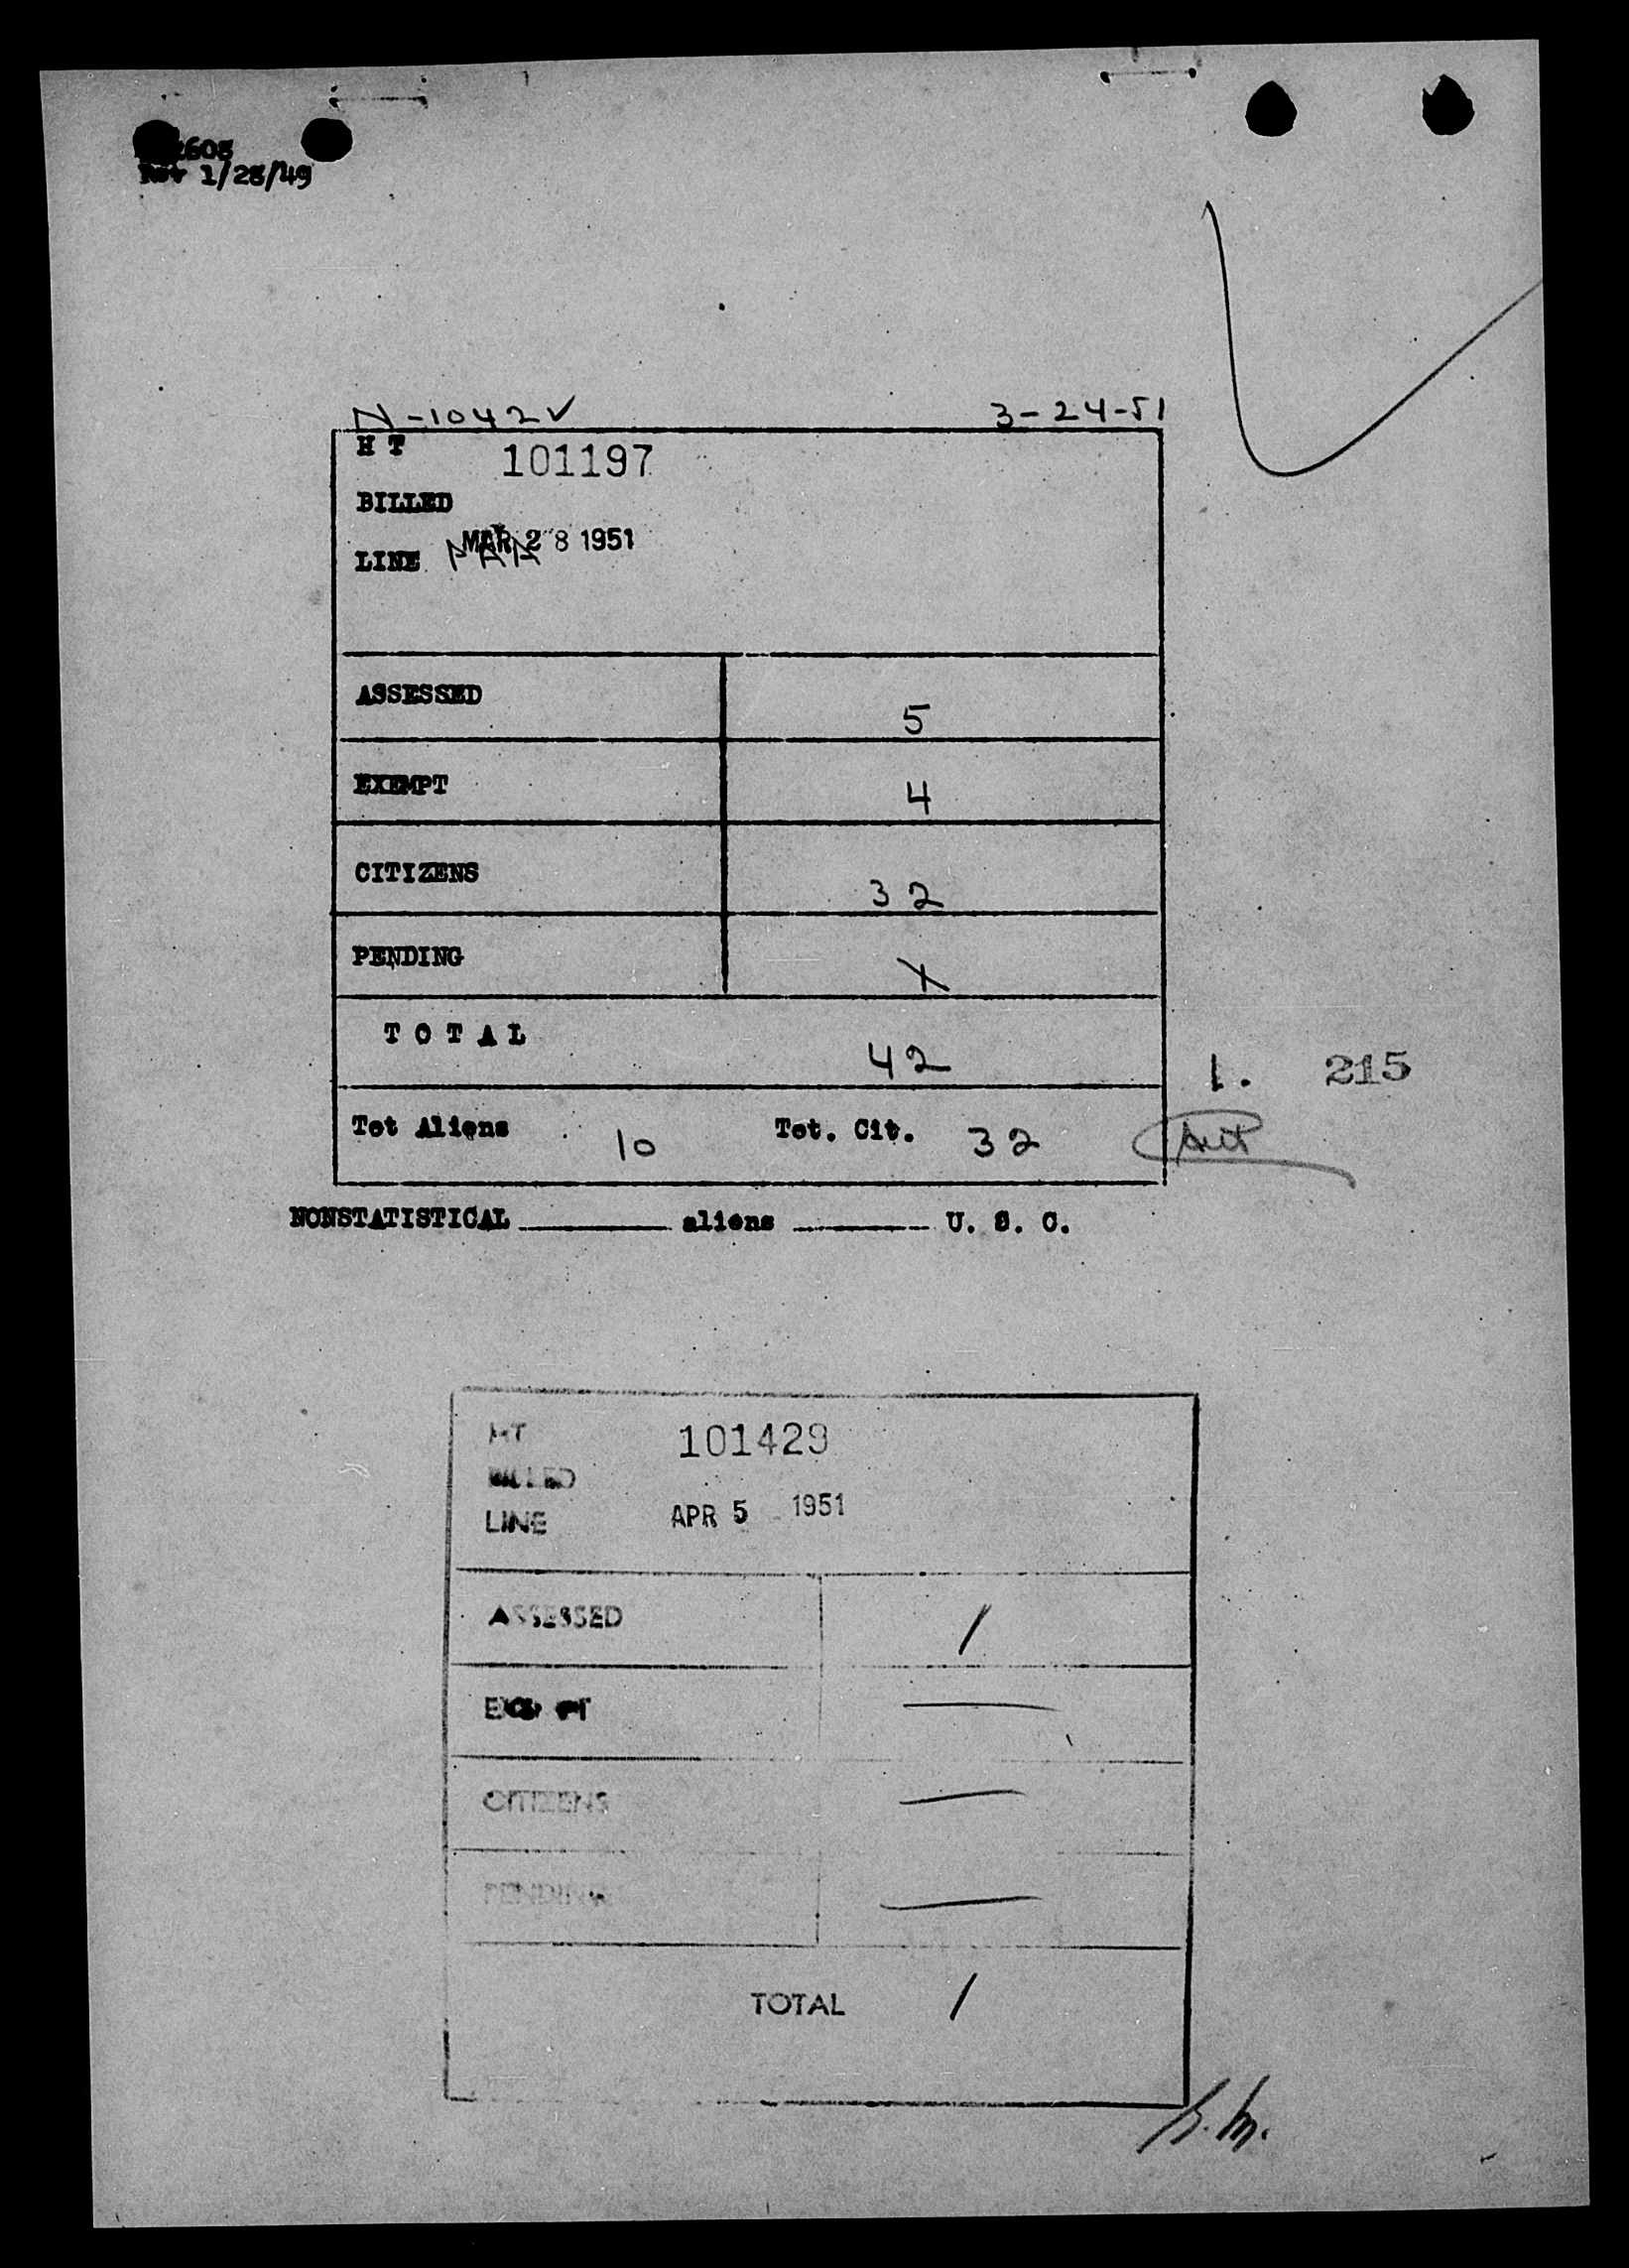 2608
Rev 1/28/49
N-1042V 3-24-51
H T 101197
BILLED
MAR 28 1951
LINE PAA
ASSESSED 5
EXEMPT 4
CITIZENS 32
PENDING X
TOTAL 42
1. 215
Tot Aliens 10 Tot. Cit. 32
NONSTATISTICAL aliens U. S. C.
HT 101429
BILLED
LINE APR 5 1951
ASSESSED 1
EXEMPT —
CITIZENS —
PENDING —
TOTAL 1